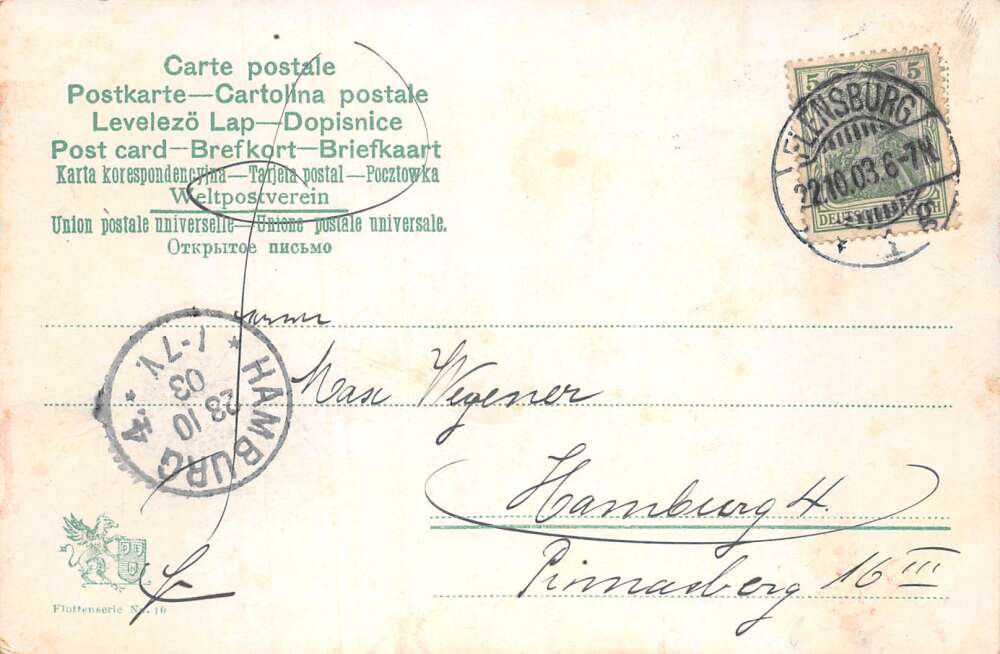 Carte postale
Postkarte—Cartolina postale
Levelezö Lap—Dopisnice
Post card—Brefkort—Briefkaart
Karta korespondencyjna—Tarjeta postal—Pocztowka
Weltpostverein
Union postale universelle—Unione postale universale.
Открытое письмо
5 5
FLENSBURG
22.10.03.6-7N.
DEUTSCHES REICH
* 1 g
* HAMBURG 4. *
23 10
03
1-7 V.
Herrn
Max Wegener
Hamburg 4.
Pinnasberg 16 III
Flottenserie No. 10